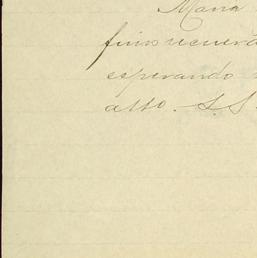 Maria
finos recuerd
esperando
atto. S. S